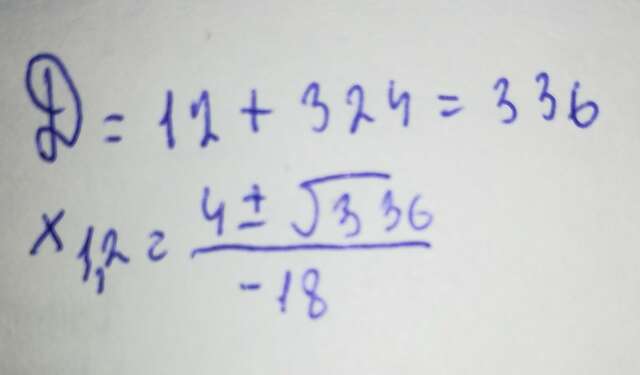 D = 12 + 324 = 336
x₁,₂ = (4 ± √336) / -18